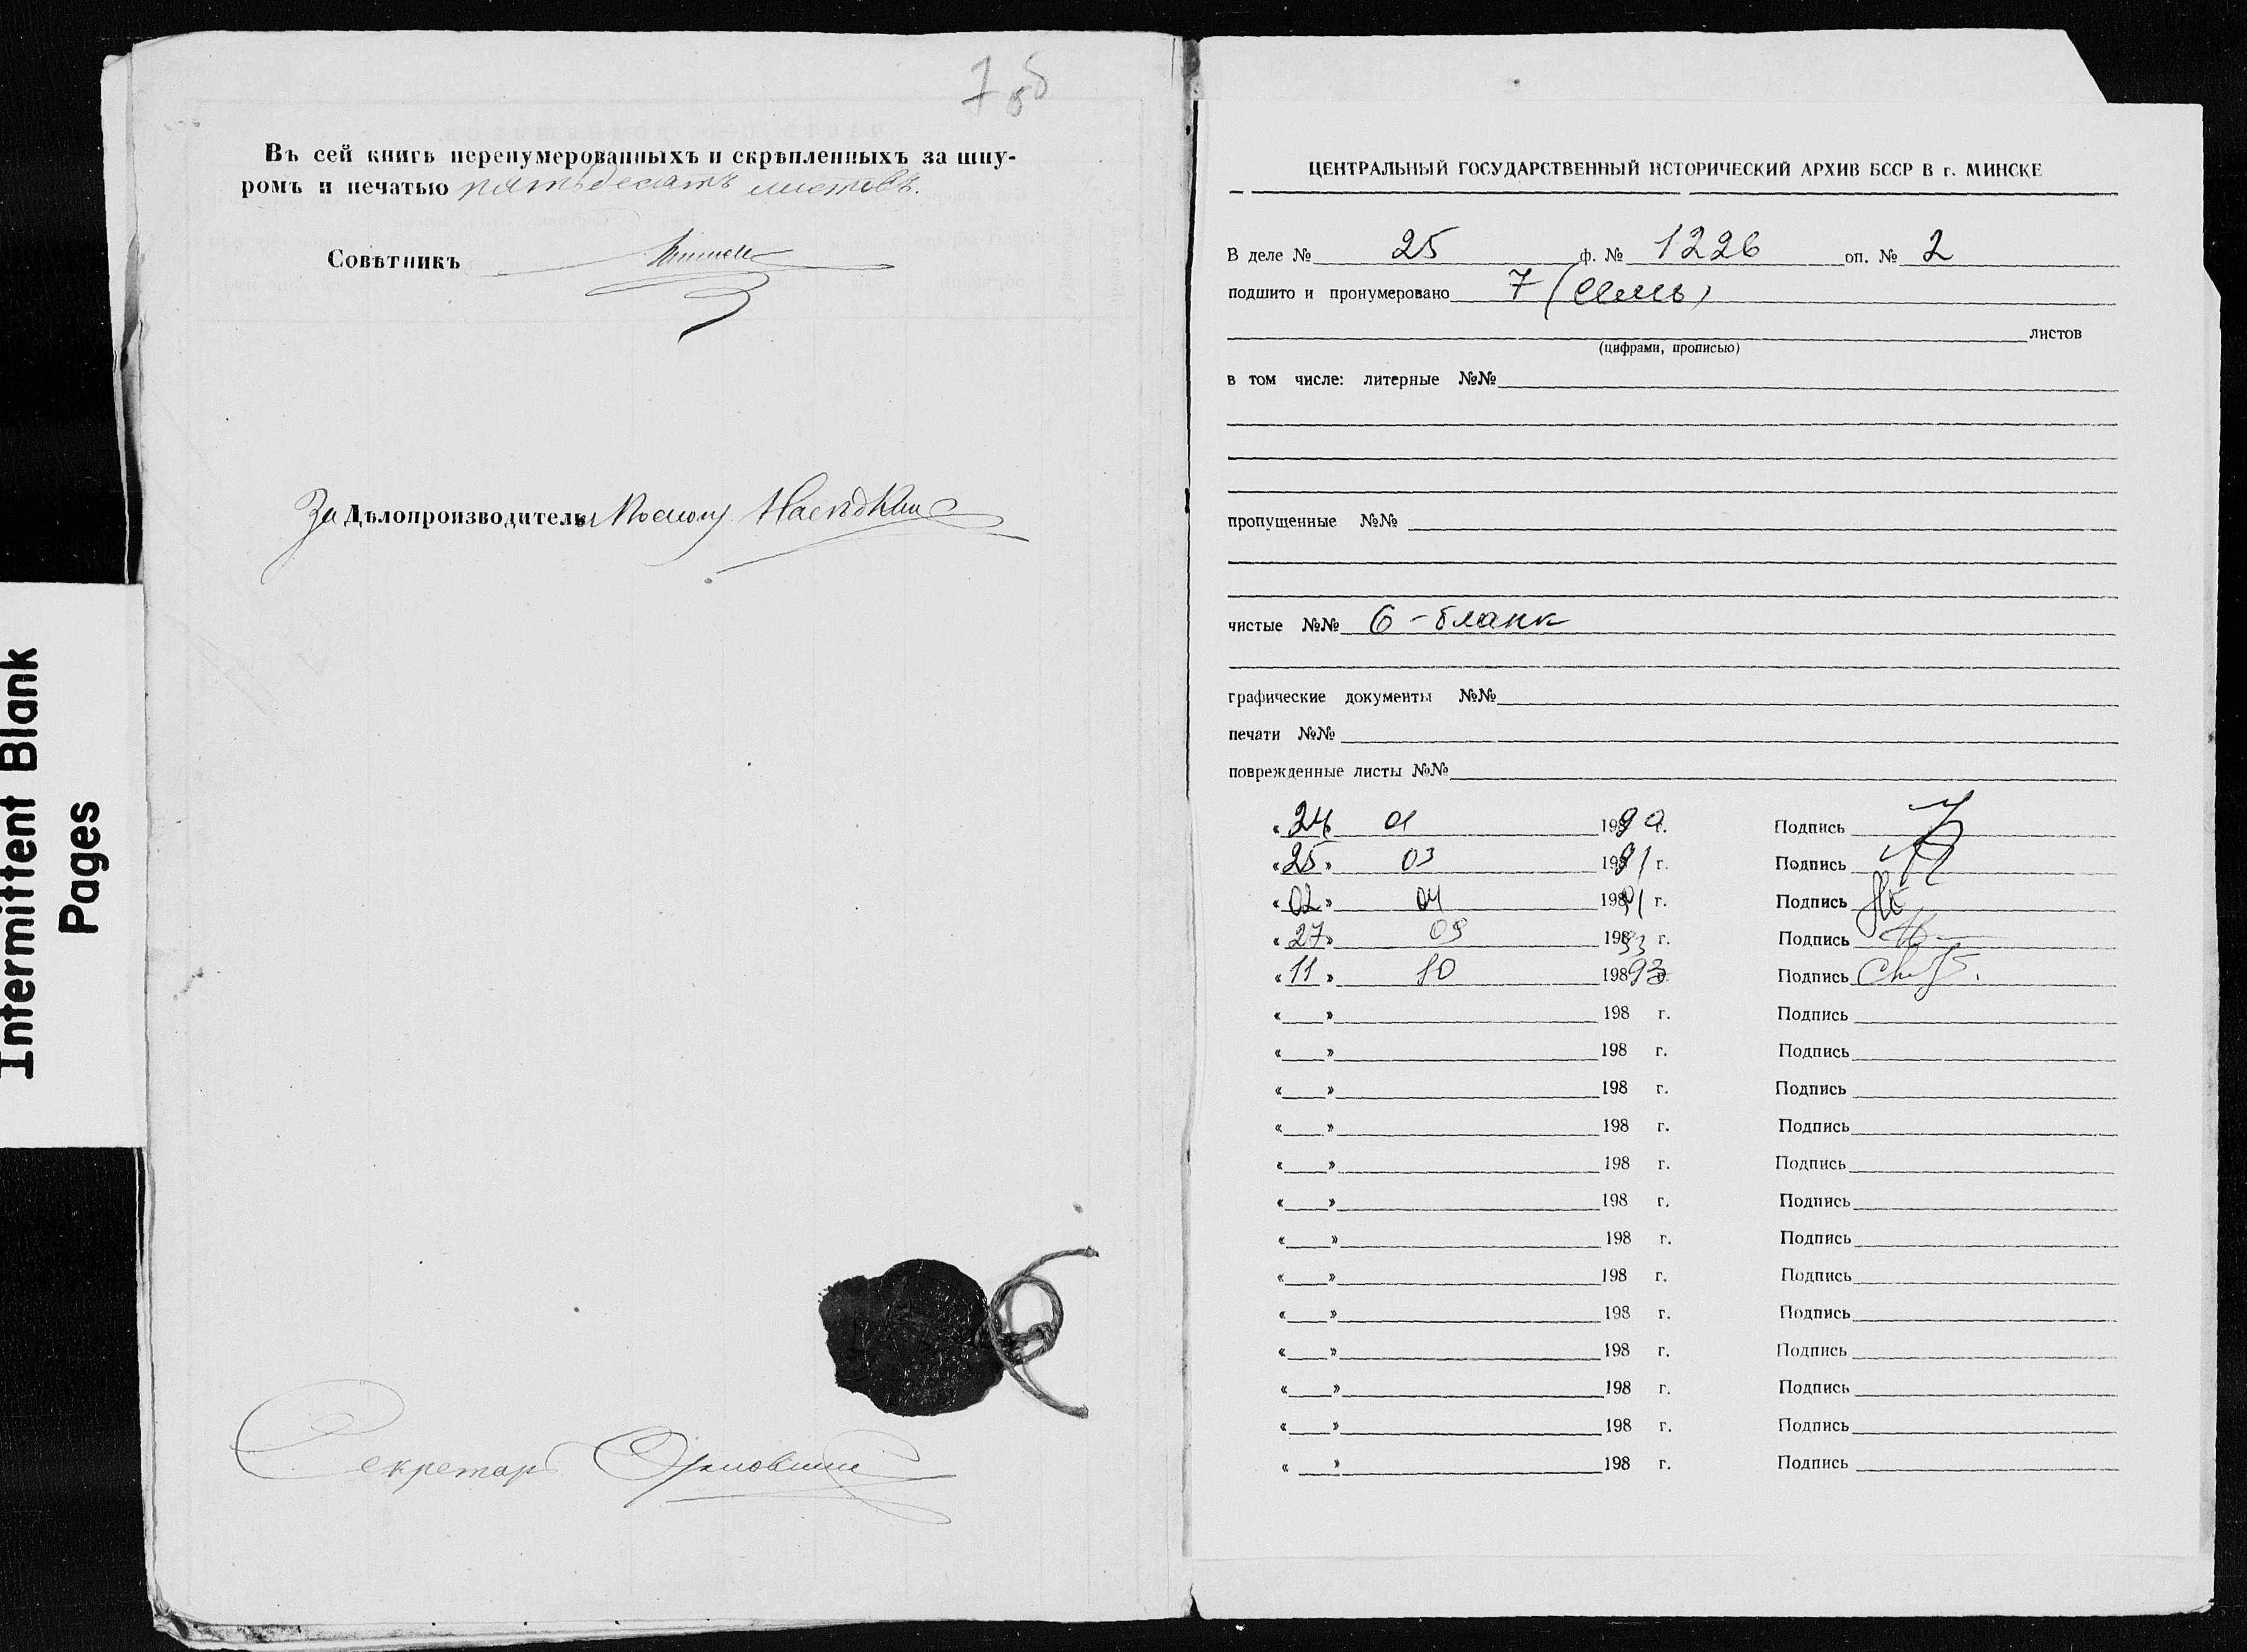 7 об
Въ сей книгѣ перенумерованныхъ и скрѣпленныхъ за шну-
ромъ и печатью пятьдесятъ листовъ.
Совѣтникъ
За Дѣлопроизводителя
Секретарь
Intermittent Blank
Pages
ЦЕНТРАЛЬНЫЙ ГОСУДАРСТВЕННЫЙ ИСТОРИЧЕСКИЙ АРХИВ БССР В г. МИНСКЕ
В деле № 25 ф. № 1226 оп. № 2
подшито и пронумеровано 7 (семь)
листов
(цифрами, прописью)
в том числе: литерные №№
пропущенные №№
чистые №№ 6 - бланк
графические документы №№
печати №№
поврежденные листы №№
« 24 » 01 1990 г. Подпись
« 25 » 03 1991 г. Подпись
« 02 » 04 1991 г. Подпись
« 27 » 09 1993 г. Подпись
« 11 » 10 1993 г. Подпись
« » 198 г. Подпись
« » 198 г. Подпись
« » 198 г. Подпись
« » 198 г. Подпись
« » 198 г. Подпись
« » 198 г. Подпись
« » 198 г. Подпись
« » 198 г. Подпись
« » 198 г. Подпись
« » 198 г. Подпись
« » 198 г. Подпись
« » 198 г. Подпись
« » 198 г. Подпись